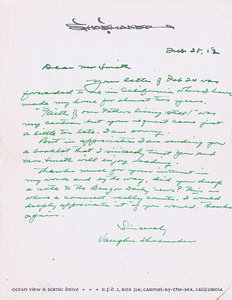 SHOEMAKER
Feb 28, 
Dear Mr Smith
Your letter of Feb 24 was
forwarded to me in California where I have
made my home for almost two years.
"Faith of our Fathers Living Still" was
my cartoon but your request came just
a little too late. I am sorry.
But in appreciation I am sending you
a booklet that I sincerely trust you and
Mrs Smith will enjoy reading.
Thanks much for your interest in
my work and by the way, did you drop
a note to the Bangor Daily News? This is
when a comment really counts. I would
deeply appreciate it if you would. Thanks
again.
Sincerely
Vaughn Shoemaker
OCEAN VIEW & SCENIC DRIVE - - - R.F.D. 1, BOX 312; CARMEL-BY-THE-SEA, CALIFORNIA